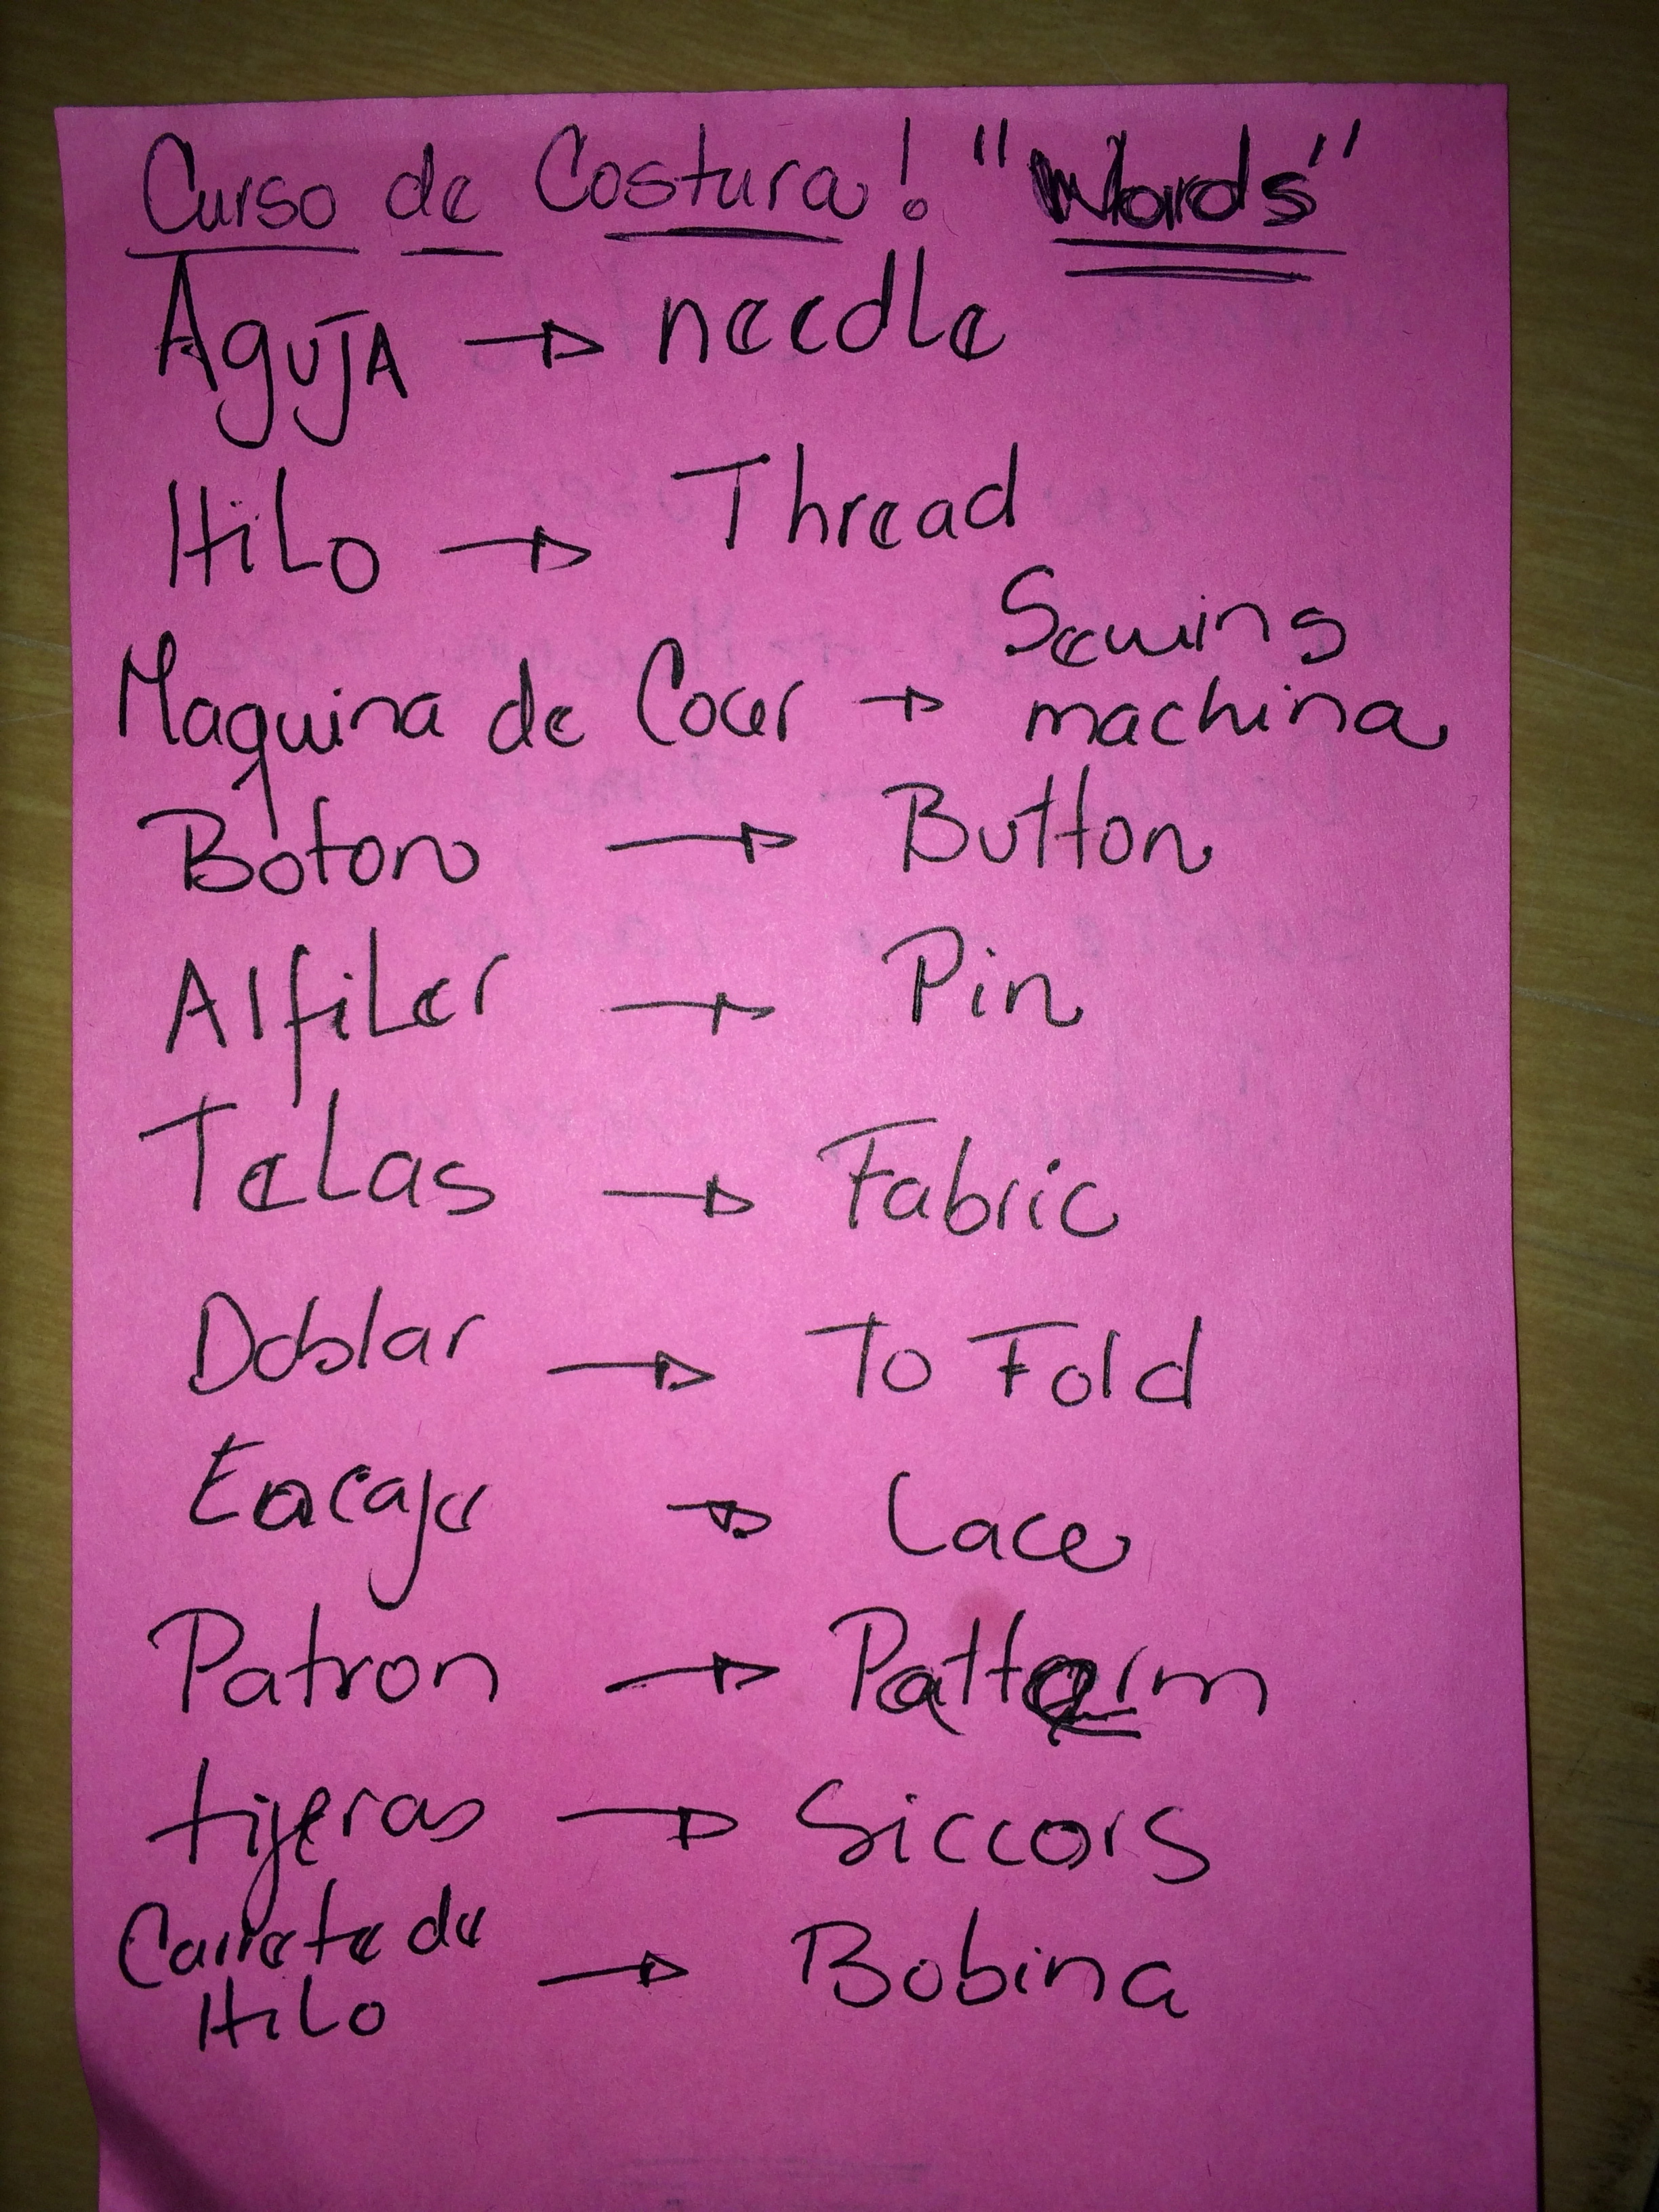 Curso de Costura! "Words"
Aguja → needle
Hilo → Thread
Maquina de Cocer → Sewing machina
Boton → Button
Alfiler → Pin
Telas → Fabric
Doblar → To Fold
Encaje → Lace
Patron → Patterm
tijeras → Siccors
Carrete de Hilo → Bobina